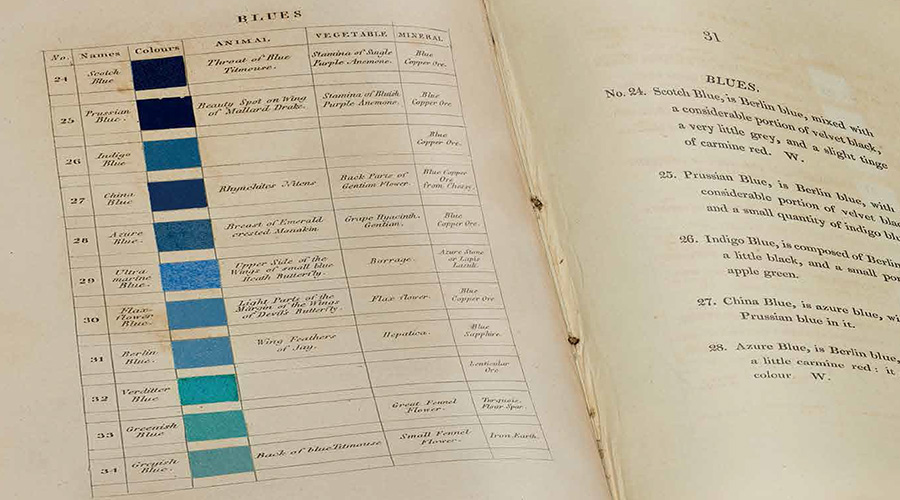 BLUES
No. Names Colours ANIMAL VEGETABLE MINERAL
24
Scotch
Blue
Throat of Blue
Titmouse.
Stamina of Single
Purple Anemone.
Blue
Copper Ore.
25
Prussian
Blue.
Beauty Spot on Wing
of Mallard Drake.
Stamina of Bluish
Purple Anemone.
Blue
Copper Ore
26
Indigo
Blue
Blue
Copper Ore.
27
China
Blue
Rhynchites Nitens
Back Parts of
Gentian Flower.
Blue Copper
Ore
from Chessy.
28
Azure
Blue.
Breast of Emerald
crested Manakin.
Grape Hyacinth.
Gentian.
Blue
Copper Ore.
29
Ultra
marine
Blue.
Upper Side of the
Wings of small blue
Heath Butterfly.
Borrage.
Azure Stone
or Lapis
Lazuli.
30
Flax-
flower
Blue.
Light Parts of the
Margin of the Wings
of Devil's Butterfly.
Flax flower.
Blue
Copper Ore
31
Berlin
Blue.
Wing Feathers
of Jay.
Hepatica.
Blue
Sapphire.
32
Verditter
Blue
Lenticular
Ore.
33
Greenish
Blue
Great Fennel
Flower.
Turquois.
Flour Spar.
34
Greyish
Blue.
Back of blue Titmouse
Small Fennel
Flower.
Iron Earth.
31
BLUES.
No. 24. Scotch Blue, is Berlin blue, mixed with
a considerable portion of velvet black,
a very little grey, and a slight tinge
of carmine red. W.
25. Prussian Blue, is Berlin blue, with
considerable portion of velvet blac
and a small quantity of indigo blu
26. Indigo Blue, is composed of Berlin
a little black, and a small por
apple green.
27. China Blue, is azure blue, wi
Prussian blue in it.
28. Azure Blue, is Berlin blue,
a little carmine red: it
colour W.